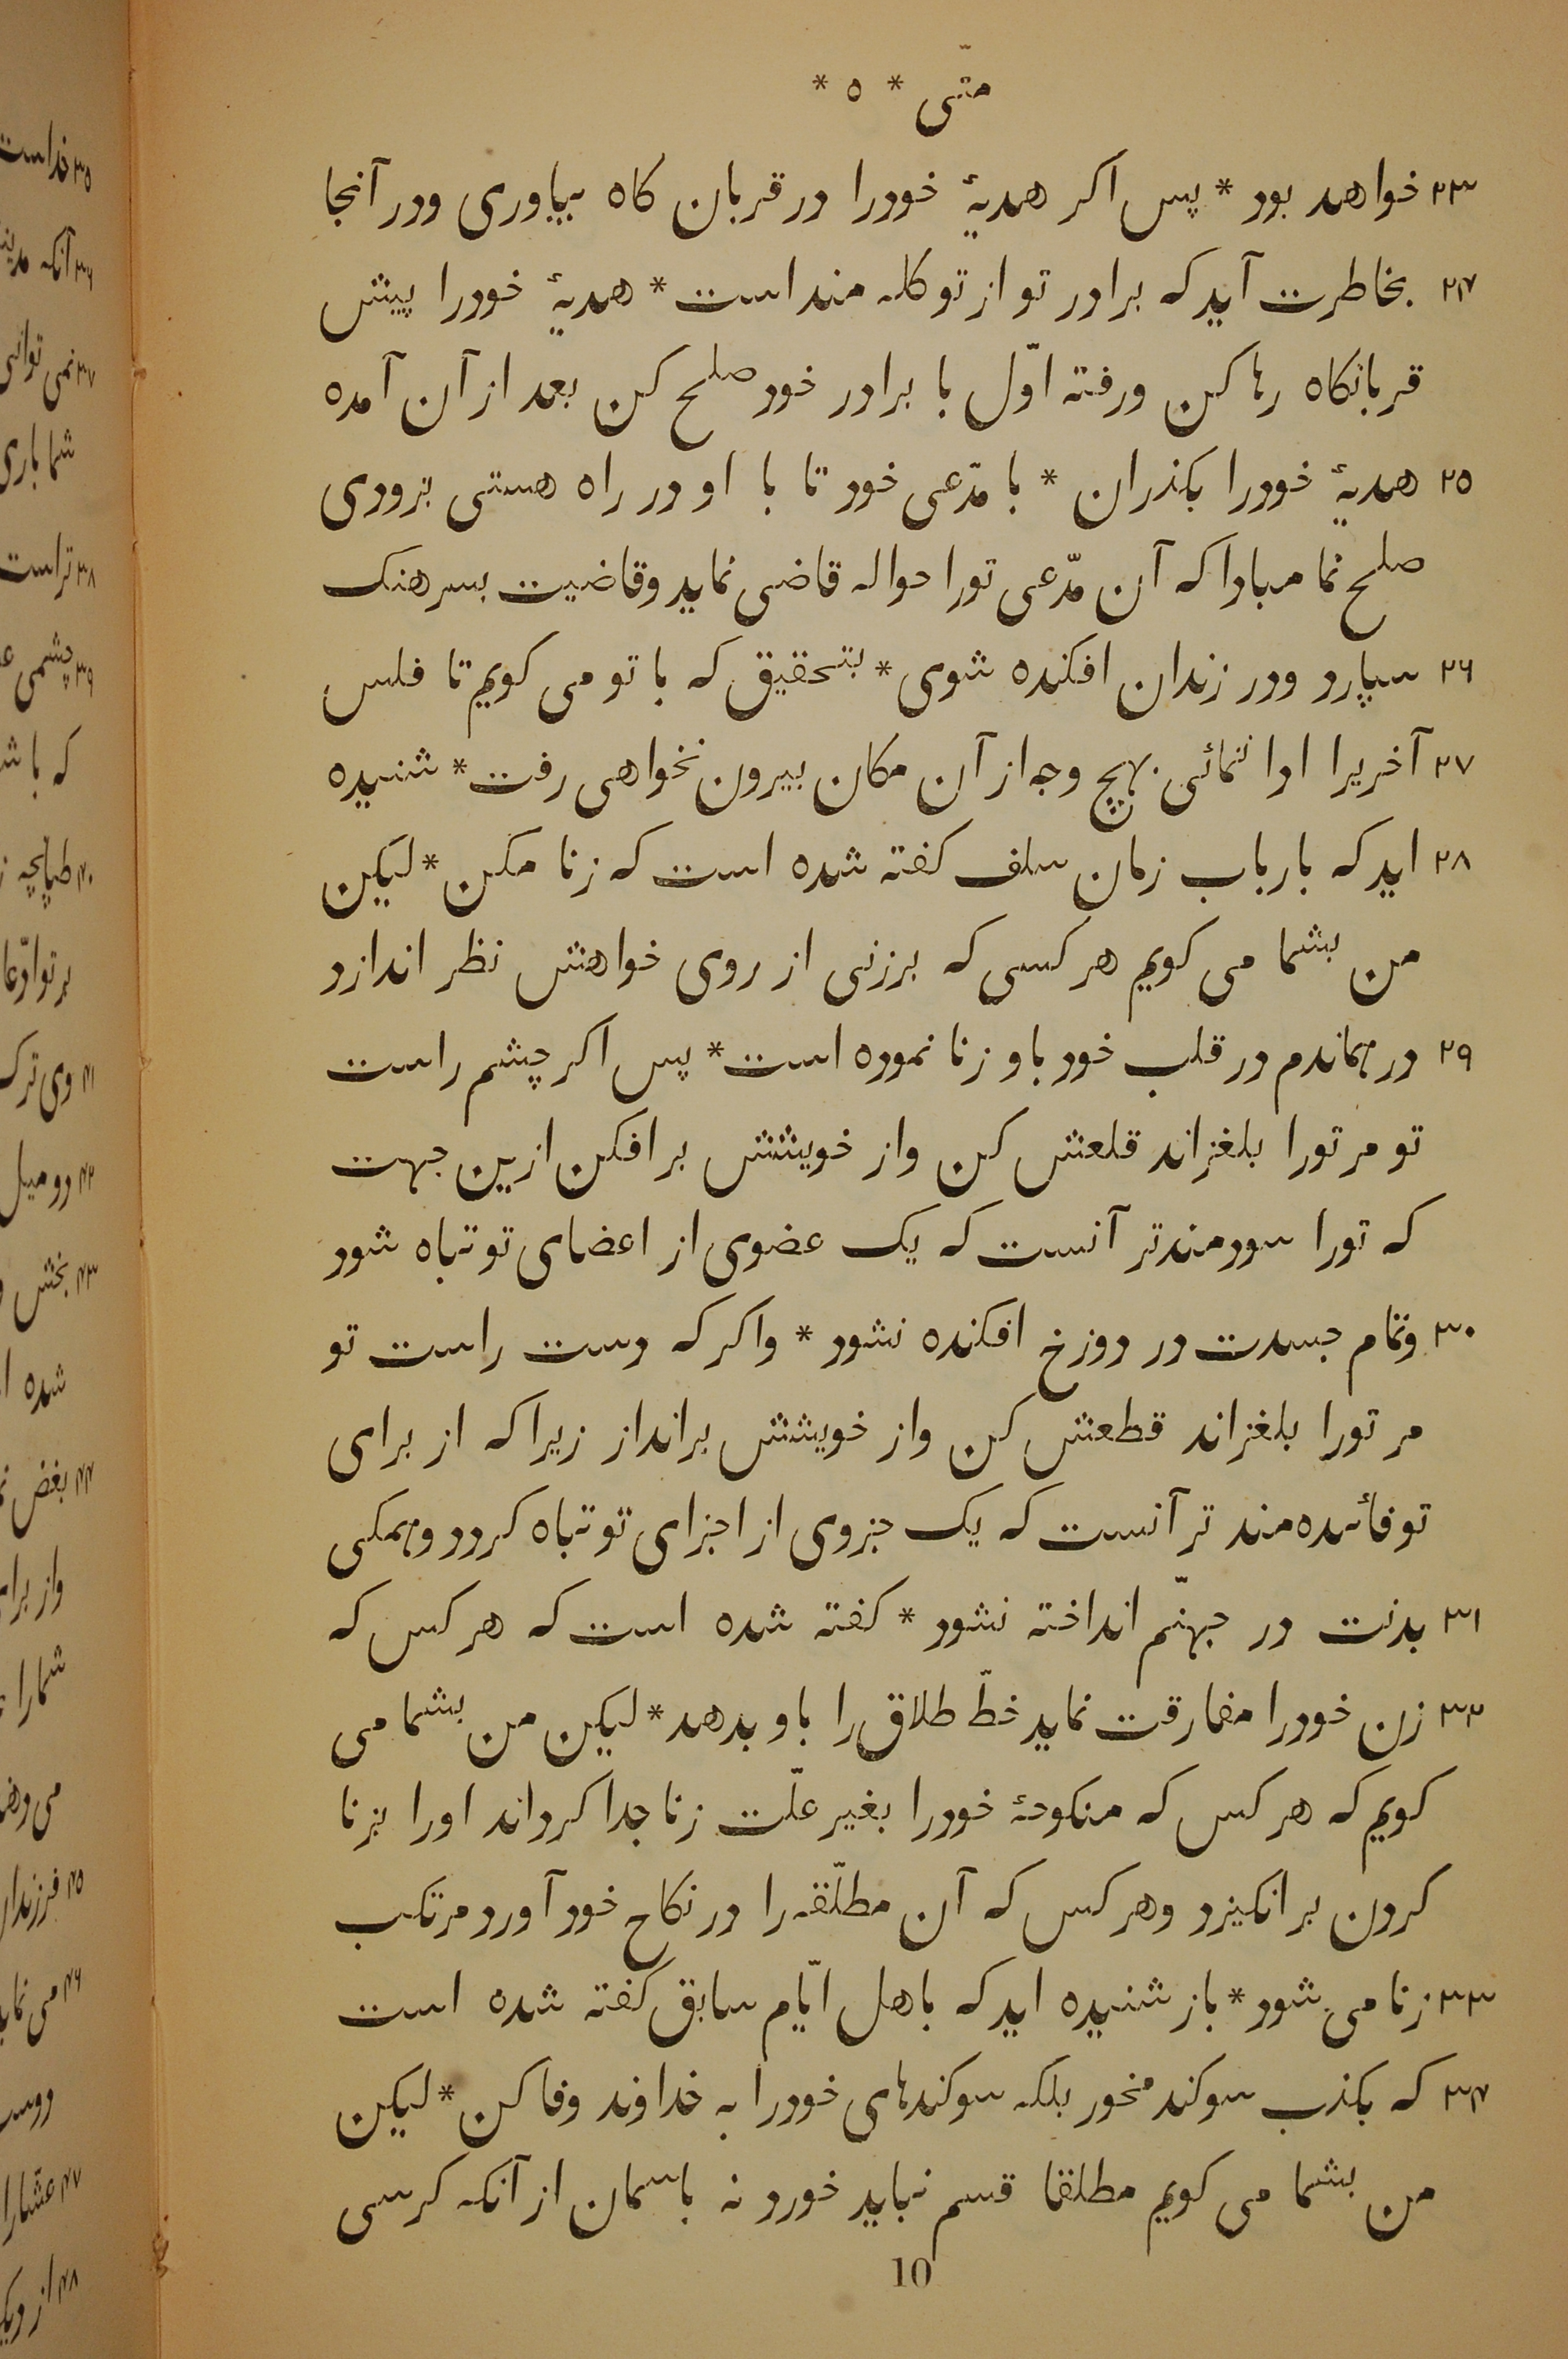 متّی * ٥ *
٢٣ خواهد بود * پس اکر هدیهٔ خودرا در قربان کاه بیاوری ودر آنجا
٢٤ بخاطرت آید که برادر تو از تو کله مند است * هدیهٔ خودرا پیش
قربانکاه رها کن ورفته اوّل با برادر خود صلح کن بعد از آن آمده
٢٥ هدیهٔ خودرا بکذران * با مدّعی خود تا با او در راه هستی بزودی
صلح نما مبادا که آن مدّعی تورا حواله قاضی نماید وقاضیت بسرهنک
٢٦ سپارد ودر زندان افکنده شوی * بتحقیق که با تو می کویم تا فلس
٢٧ آخریرا ادا ننمائی بهیچ وجه از آن مکان بیرون نخواهی رفت * شنیده
٢٨ اید که بارباب زمان سلف کفته شده است که زنا مکن * لیکن
من بشما می کویم هر کسی که برزنی از روی خواهش نظر اندازد
٢٩ در هماندم در قلب خود باو زنا نموده است * پس اکر چشم راست
تو مر تورا بلغزاند قلعش کن واز خویشش بر افکن ازین جهت
که تورا سودمندتر آنست که یک عضوی از اعضای تو تباه شود
٣٠ وتمام جسدت در دوزخ افکنده نشود * واکر که دست راست تو
مر تورا بلغزاند قطعش کن واز خویشش برانداز زیرا که از برای
تو فائده مند تر آنست که یک جزوی از اجزای تو تباه کردد وهمکی
٣١ بدنت در جهنّم انداخته نشود * کفته شده است که هر کس که
٣٢ زن خودرا مفارقت نماید خطّ طلاق را باو بدهد * لیکن من بشما می
کویم که هر کس که منکوحهٔ خودرا بغیر علّت زنا جدا کرداند اورا بزنا
کردن بر انکیزد وهر کس که آن مطلّقه را در نکاح خود آورد مرتکب
٣٣ زنا می شود * باز شنیده اید که باهل ایّام سابق کفته شده است
٣٤ که بکذب سوکند مخور بلکه سوکندهای خودرا به خداوند وفا کن * لیکن
من بشما می کویم مطلقا قسم نباید خورد نه باسمان از آنکه کرسی
10